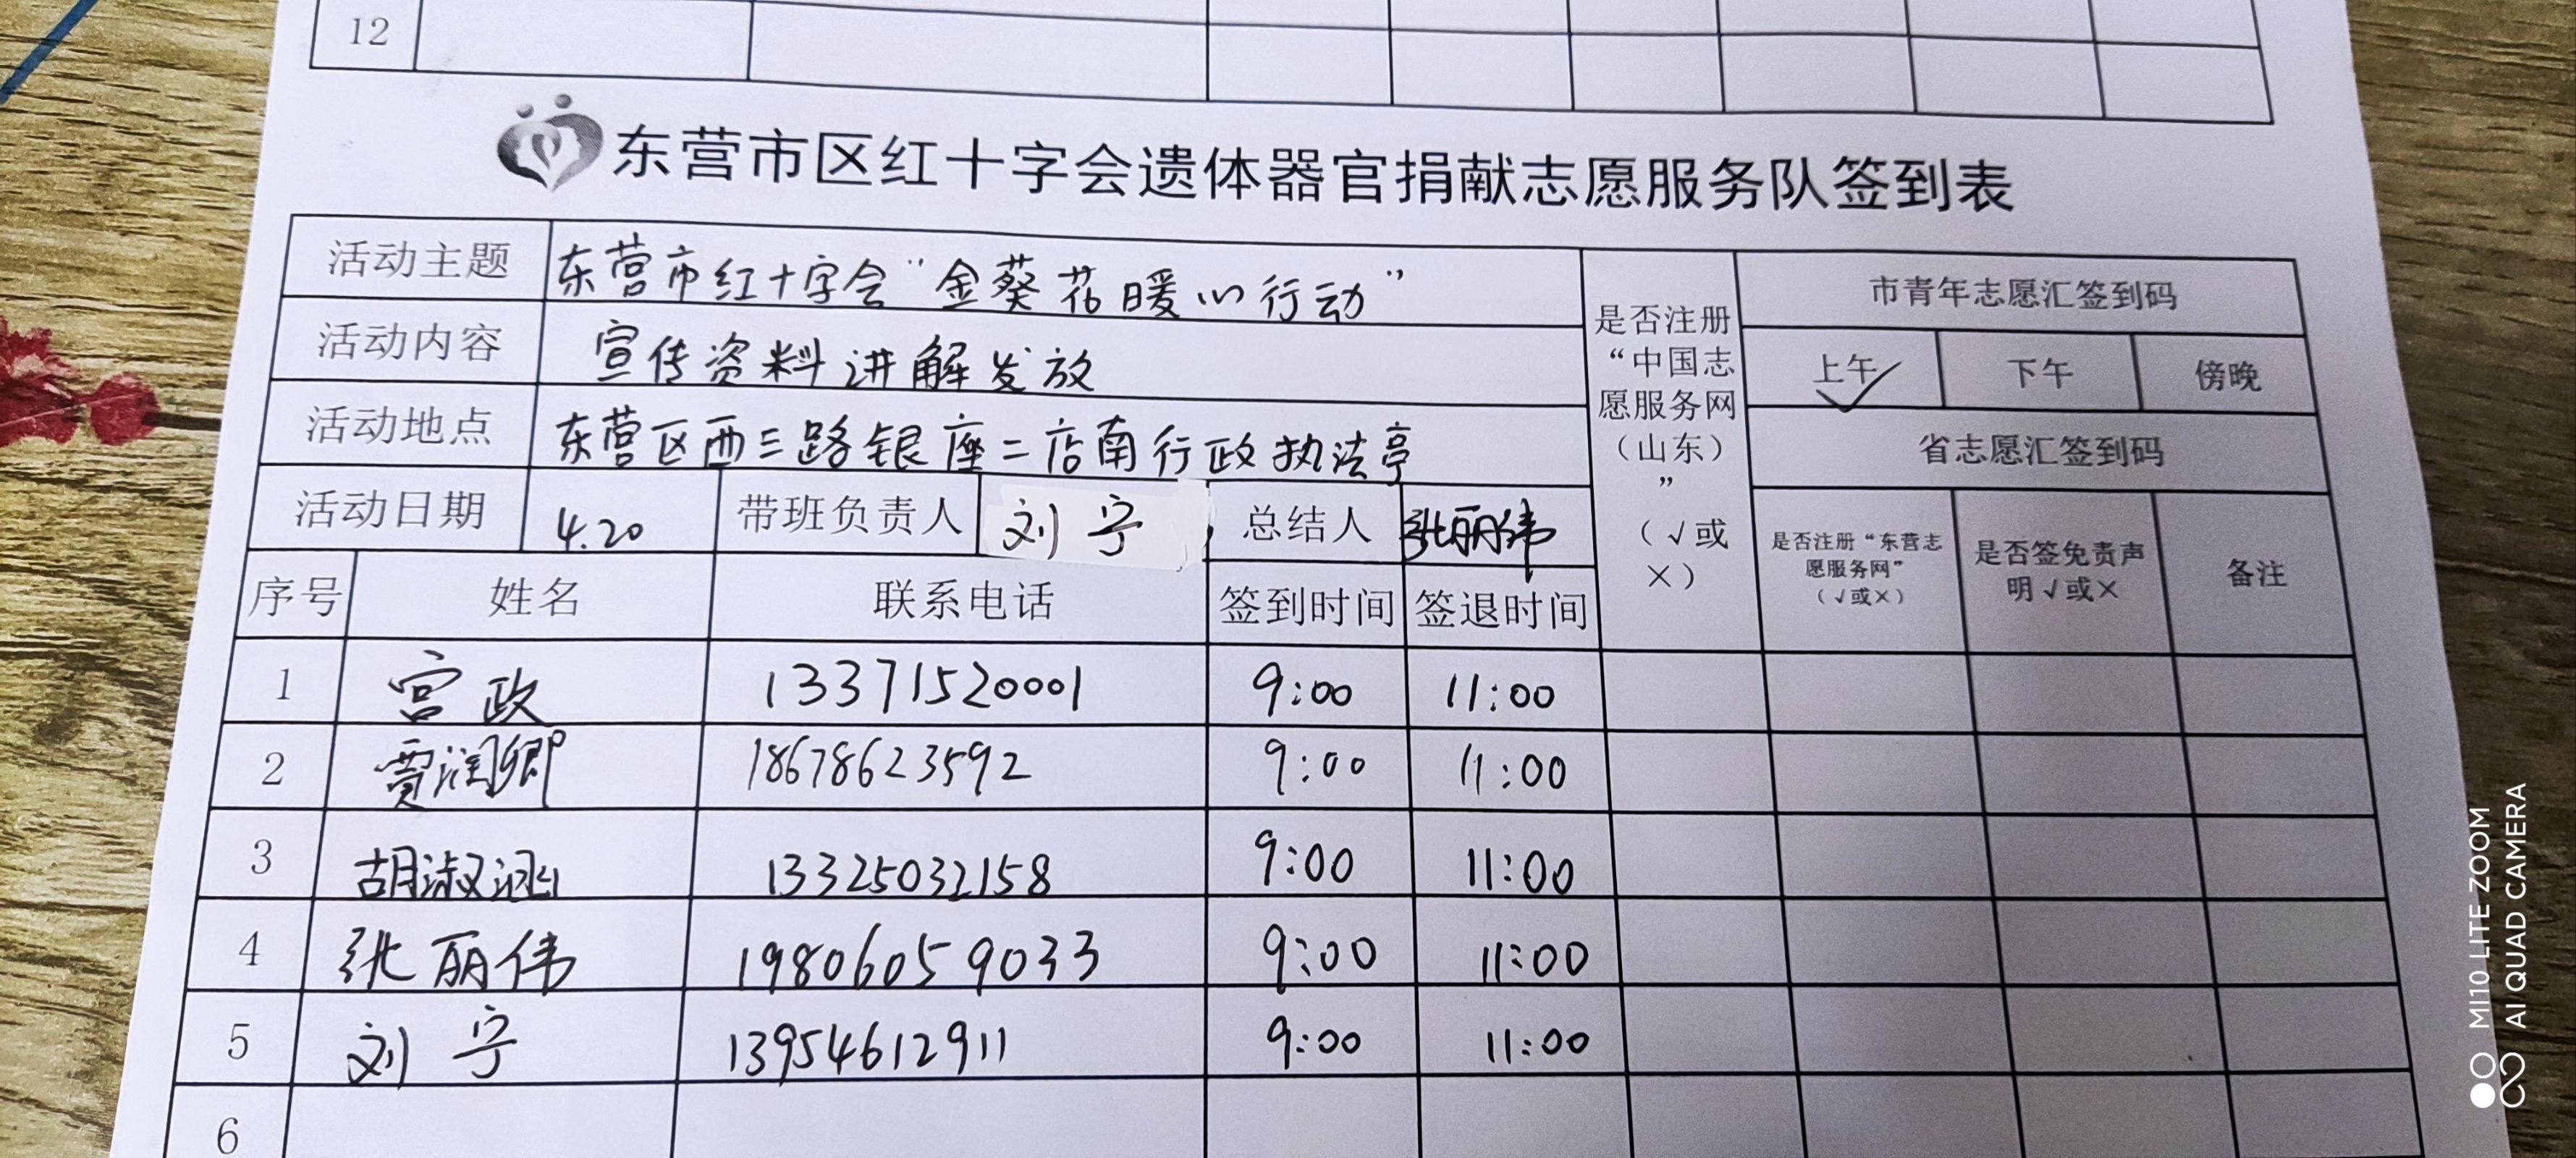 12
东营市区红十字会遗体器官捐献志愿服务队签到表
活动主题 东营市红十字会“金葵花暖心行动”
活动内容 宣传资料讲解发放
活动地点 东营区西三路银座二店南行政执法亭
活动日期 4.20 带班负责人 刘宁 总结人 张丽伟
是否注册
“中国志
愿服务网
（山东）
”
（√或
×）
市青年志愿汇签到码
上午✓ 下午 傍晚
省志愿汇签到码
是否注册“东营志
愿服务网”
（√或×）
是否签免责声
明√或×
备注
序号 姓名 联系电话 签到时间 签退时间
1 宫政 13371520001 9:00 11:00
2 贾润卿 18678623592 9:00 11:00
3 胡淑涵 13325032158 9:00 11:00
4 张丽伟 19806059033 9:00 11:00
5 刘宁 13954612911 9:00 11:00
6
MI10 LITE ZOOM
AI QUAD CAMERA